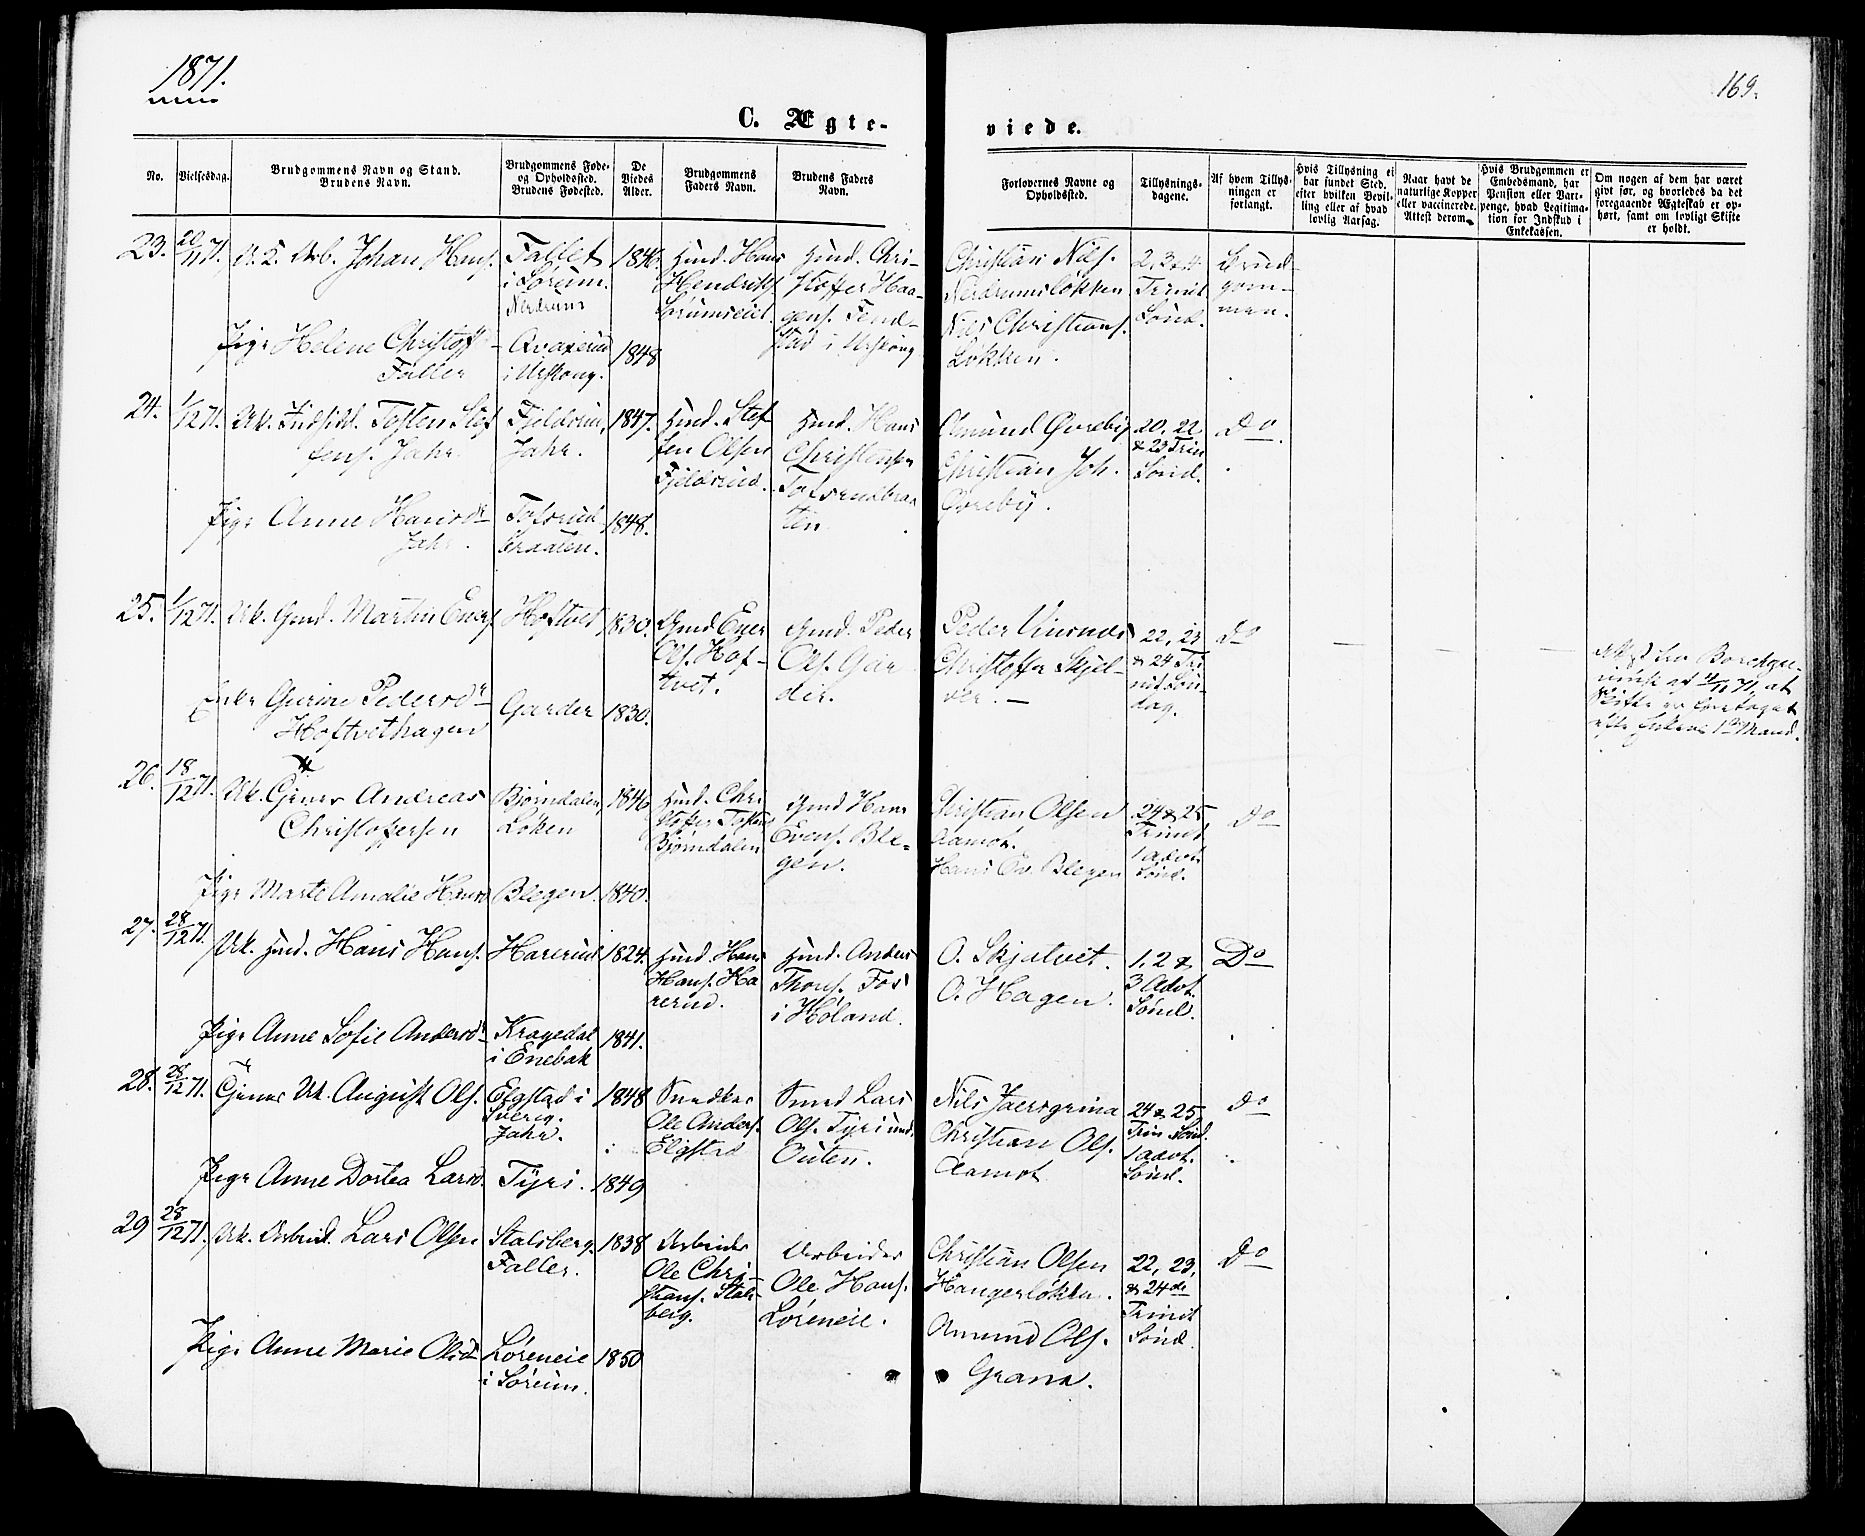 1871.
169.
C. Ægte-
viede.
No.
Vielsesdag.
Brudgommens Navn og Stand.
Brudens Navn.
Brudgommens Føde-
og Opholdssted.
Brudens Fødested.
De
Viedes
Alder.
Brudgommens
Faders Navn.
Brudens Faders
Navn.
Forlovernes Navne og
Opholdssted.
Tillysnings-
dagene.
Af hvem Tillys-
ningen er
forlangt.
Hvis Tillysning ei
har fundet Sted,
efter hvilken Bevil-
ling eller af hvad
lovlig Aarsag.
Naar havt de
naturlige Kopper
eller vaccinerede.
Attest derom.
Hvis Brudgommen er
Embedsmand, har
Pension eller Vart-
penge, hvad Legitima-
tion for Indskud i
Enkekassen.
Om nogen af dem har været
gift før, og hvorledes da det
foregaaende Ægteskab er op-
hørt, samt om lovligt Skifte
er holdt.
23. 20/11 71. Arb. Johan Hans.
Fallet
i Sørum.
Nerdrum
1846.
Husd. Hans
Hendriks
Sørumseiet.
Husd. Chri-
stoffer Haa-
gens. Fend-
stad i Urskoug
Christian Nils.
Nerdrumsløkken
Nils Christians.
Løkken.
2, 3 & 4
Trinit
Sønd.
Brud-
gom-
men.
Pige Helene Christoff
Faller
i Urskoug.
1848
24. 1/12 71. Uk. Indsidd. Tosten Stef
fens. Jahr.
Fjeldsrud,
Jahr.
1847.
Husd. Stef
fen Olsen
Fjeldsrud.
Husd. Hans
Christensen
Tofsrudbraa
ten.
Amund Øvreby
Christian Joh.
Øvreby.
20, 22
& 23 Trin
Sønd.
Do
Pige Anne Hansdr
Jahr.
Tofsrud
braaten.
1848.
25. 1/12 71. Uk. Gmd. Martin Evers
Hoftvet
1830.
Gmd Ever
Ols. Hof-
tvet.
Gmd. Peder
Ols. Gar
der.
Peder Vinsnes
Christoffer Skjel-
ver. —
22, 23
& 24 Tri
nit Søn-
dag.
Do
Enke Gurine Pedersdr
Hoftvethagen
Garder
1830.
26. 18/12 71. Uk. Gjener Andreas
Christoffersen
Bjørndalen,
Løken
1846
Husd. Chri
stoffer Tostens
Bjørndalen
Gmd Hans
Evens. Ble-
gen.
Christian Olsen
Aamot.
Hans Ev. Blegen
24 & 25
Trinit
1 Advt.
Sønd.
Do
Pige Marte Amalie Hansd
Blegen.
1840.
27. 28/12 71. Uk. Husd. Hans Hans.
Harerud
1824.
Husd. Hans
Hans. Ha
rerud.
Husd. Anders
Thors. Fos
i Høland.
O. Skjatvet.
O. Hagen.
1, 2 &
3 Advt.
Sønd.
Do
Pige Anne Sofie Andersdr
Kragedal
i Enebak
1841.
28. 28/12 71. Gjener Uk. August Ols.
Elgstad i
Sverig.
Jahr.
1848
Snedker
Ole Anders.
Elgstad
Smed Lars
Ols. Tyri und.
Outen.
Christian Ols.
Aamot
24 & 25
Trin Sønd.
1 Advt.
Sønd.
Do
Pige Anne Dortea Larsd.
Tyri.
1849
29 28/12 71. Uk. Arbeid. Lars Olsen
Stalsberg,
Faller.
1838
Arbeider
Ole Chri-
stians. Stals-
berg.
Arbeider
Ole Hans.
Løreneie.
Christian Olsen
Haugerløkka.
Amund Ols.
Grana.
22, 23,
& 24de
Trinit
Sønd.
Do
Pige Anne Marie Olsd
Løreneie
i Sørum.
1850